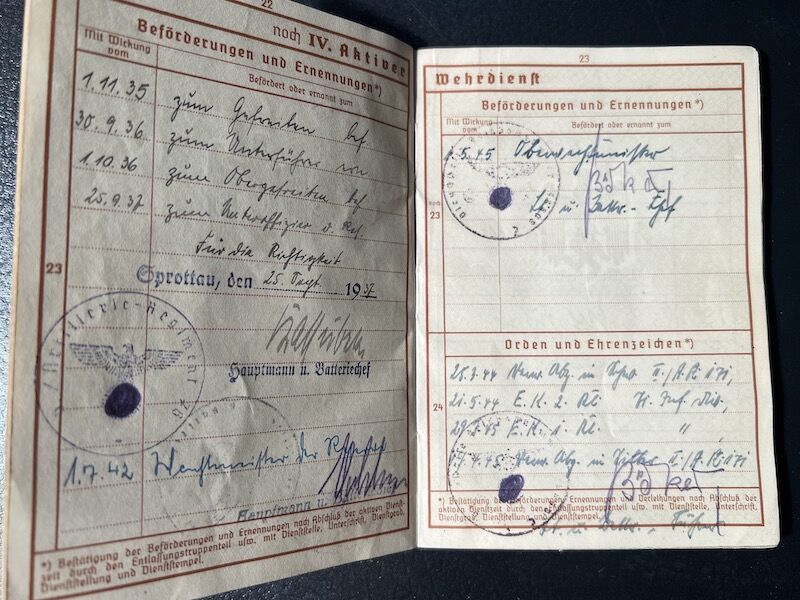 22
noch IV. Aktiver
Beförderungen und Ernennungen*)
Mit Wirkung vom
Befördert oder ernannt zum
1.11.35 zum Gefreiten bef
30.9.36 zum Unterführer
1.10.36 zum Obergefreiten bef
25.9.37 zum Unteroffizier d. Res
Für die Richtigkeit
23
Sprottau, den 25. Sept. 1937
Hauptmann u. Batteriechef
Artillerie-Regiment
1.7.42 Wachtmeister der Reserve
Hauptmann u.
*) Bestätigung der Beförderungen und Ernennungen nach Abschluß der aktiven Dienst-
zeit durch den Entlassungstruppenteil usw. mit Dienststelle, Unterschrift, Dienstgrad,
Dienststellung und Dienststempel.
23
Wehrdienst
Beförderungen und Ernennungen*)
Mit Wirkung vom
Befördert oder ernannt zum
1.5.45 Oberwachtmeister
Lt. u. Battr.-Chef
noch
23
Orden und Ehrenzeichen*)
25.3.44 Verw. Abz. in Schw. II./A.R. 171,
21.5.44 E.K. 2. Kl. 71. Inf. Div.,
29.3.45 E.K. 1. Kl. " ,
24
.4.45 Verw. Abz. in Silber II/A.R. 171
*) Bestätigung der Beförderungen, Ernennungen und Verleihungen nach Abschluß der
aktiven Dienstzeit durch den Entlassungstruppenteil usw. mit Dienststelle, Unterschrift,
Dienstgrad, Dienststellung und Dienststempel.
Lt. u. Battr.-Führer